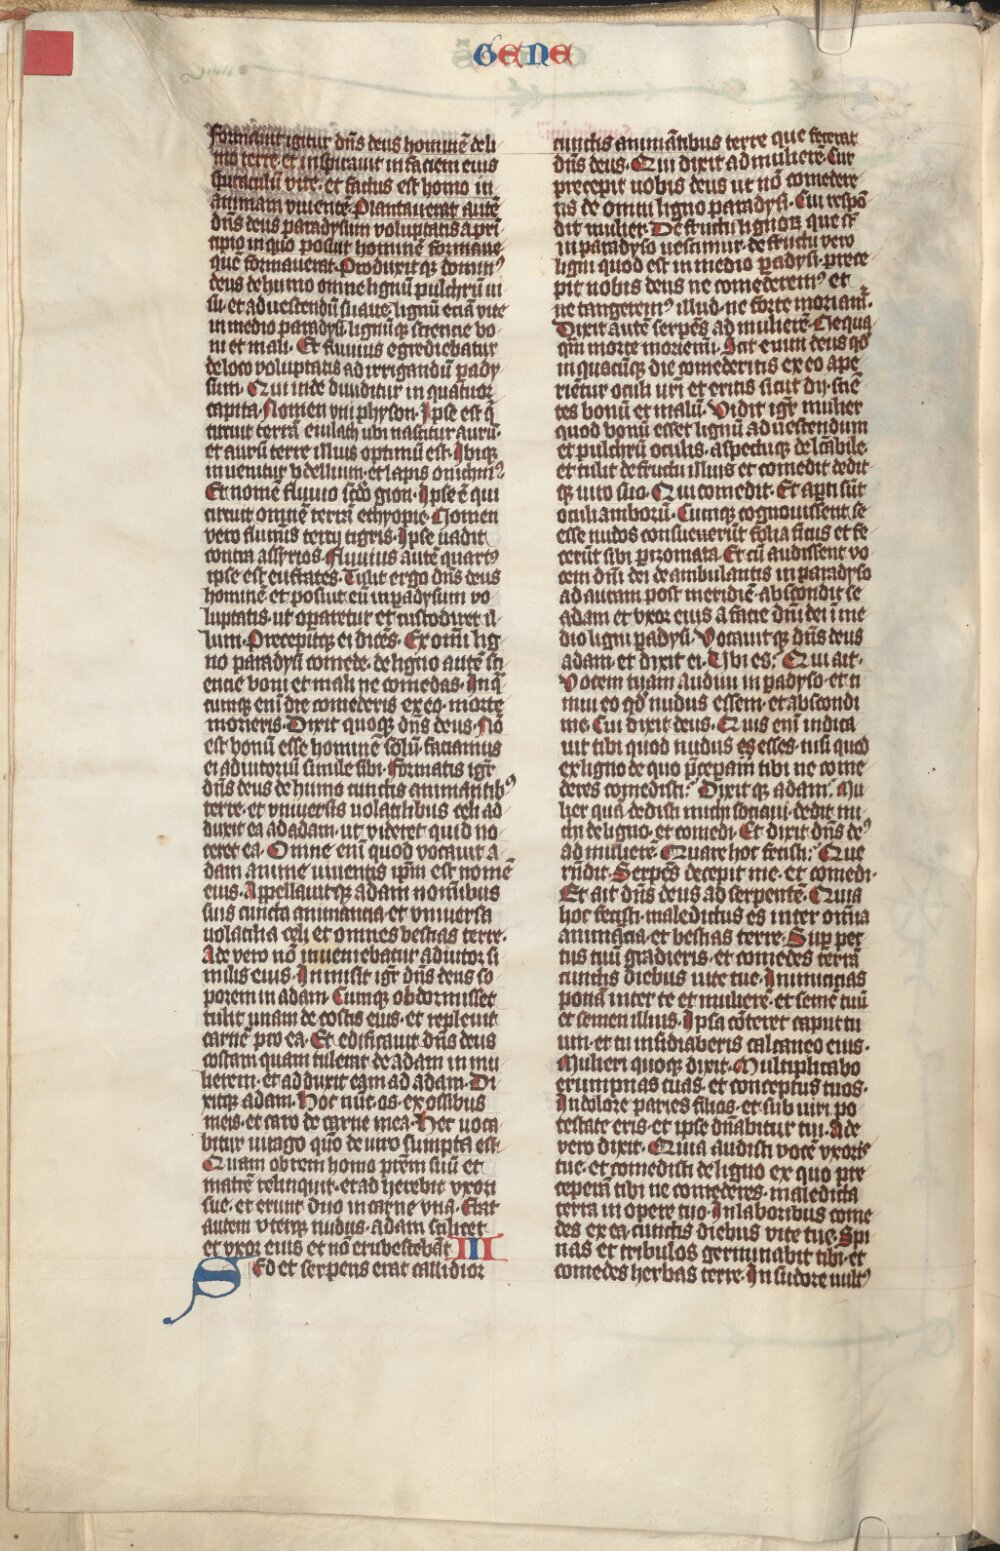 GENE
formauit igitur dn̄s deus hominē de li
mo terre et inspirauit in faciem eius
spiraculū vite· et factus est homo in
animam viuentē· Plantauerat autē
dn̄s deus paradysum voluptatis a pri
cipio in quo posuit hominē formaue
que formauerat· Produxitqꝫ domin⁹
deus de humo omne lignū pulchrū ui
su· et ad uescendū suaue· lignū eciā vite
in medio paradysi lignūqꝫ sciencie bo
ni et mali· Et fluuius egrediebatur
de loco voluptatis ad irrigandū pady
sum· Qui inde diuiditur in quatuor
capita· Nomen vni physon· Ipse est q̄
circuit terrā euilach ubi nascitur aurū·
et aurū terre illius optimū est· Ibiqꝫ
inuenitur bdellium· et lapis onichin⁹
Et nomē fluuio scd̄o gion· Ipse ē qui
circuit omnē terrā ethyopie· Nomen
vero fluminis tercij tigris· Ipse uadit
contra assyrios· Fluuius autē quart⁹
ipse est eufrates· Tulit ergo dn̄s deus
hominē et posuit eū in padysum vo
luptatis· ut opararetur et custodiret il
lum· Precepitqꝫ ei dicēs· Ex omni lig
no paradysi comede· de ligno autē sci
encie boni et mali ne comedas· In q̄
cumqꝫ enī die comederis ex eo· morte
morieris· Dixit quoqꝫ dn̄s deus· Nō
est bonū esse hominē solū· faciamus
ei adiutoriū simile sibi· Formatis igr̄
dn̄s deus de humo cunctis animantib⁹
terre· et vniuersis uolatilibus celi ad
duxit ea ad adam· ut videret quid uo
caret ea· Omne enī quod vocauit a
dam anime uiuentis ipm̄ est nomē
eius· Appellauitqꝫ adam nominibus
suis cuncta animancia· et vniuersa
uolatilia celi et omnes bestias terre·
Ade vero nō inueniebatur adiutor si
milis eius· Inmisit igr̄ dn̄s deus so
porem in adam· Cumqꝫ obdormisset
tulit unam de costis eius· et repleuit
carnē pro ea· Et edificauit dn̄s deus
costam quam tulerat de adam in mu
lierem· et adduxit eam ad adam· Di
xitqꝫ adam· Hoc nūc os· ex ossibus
meis· et caro de carne mea· Hec uoca
bitur uirago quō de uiro sumpta est
Quam obrem homo prēm suū et
matrē relinquit· et adherebit vxori
sue· et erunt duo in carne vna· Erat
autem uterqꝫ nudus· adam scilicet
et vxor eius et nō erubescebāt III
Sed et serpens erat callidior
cunctis animantibus terre que fecerat
dn̄s deus· Qui dixit ad mulierē· Cur
precepit uobis deus ut nō comedere
tis de omni ligno paradysi· Cui respō
dit mulier· De fructu lignoꝝ que sūt
in paradyso uescimur· de fructu vero
ligni quod est in medio padysi· prece
pit nobis deus ne comederem⁹ et
ne tangerem⁹ illud· ne forte moriam̄·
Dixit autē serpēs ad mulierē· Nequa
q̄m morte moriemini· Scit enim deus qd̄
in quocūqꝫ die comederitis ex eo ape
rientur oculi uri et eritis sicut dij· sciē
tes bonū et malū· Vidit igr̄ mulier
quod bonū esset lignū ad uescendum
et pulchrū oculis· aspectuqꝫ delectabile·
et tulit de fructu illius et comedit dedit
qꝫ uiro suo· Qui comedit· Et apti sūt
oculi amborū· Cumqꝫ cognouissent se
esse nudos consuerūt folia ficus et fe
cerūt sibi pizomata· Et cū audissent vo
cem dn̄i dei deambulantis in paradyso
ad auram post meridiē· abscondit se
adam et vxor eius a facie dn̄i dei in me
dio ligni padysi· Vocauitqꝫ dn̄s deus
adam· et dixit ei· Vbi es? Qui ait·
Vocem tuam audiui in padyso· et ti
mui eo qd̄ nudus essem· et abscondi
me· Cui dixit deus· Quis enī indica
uit tibi quod nudus es esses· nisi quod
ex ligno de quo p̄ceperam tibi ne come
deres comedisti? Dixitqꝫ adam· Mu
lier quā dedisti michi sociam· dedit mi
chi de ligno· et comedi· Et dixit dn̄s de⁹
ad mulierē· Quare hoc fecisti? Que
rn̄dit· Serpēs decepit me· et comedi·
Et ait dn̄s deus ad serpentē· Quia
hoc fecisti· maledictus es inter omnia
animācia· et bestias terre· Sup pec
tus tuū gradieris· et comedes terrā
cunctis diebus uite tue· Inimicicias
ponā inter te et mulierē· et semē tuū
et semen illius· Ipsa cōteret caput tu
um· et tu insidiaberis calcaneo eius·
Mulieri quoqꝫ dixit· Multiplicabo
erumpnas tuas· et conceptus tuos·
In dolore paries filios· et sub uiri po
testate eris· et ipse dn̄abitur tui· Ade
vero dixit· Quia audisti vocē vxoris
tue· et comedisti de ligno ex quo pre
ceperā tibi ne comederes· maledicta
terra in opere tuo· In laboribus come
des ex ea· cunctis diebus vite tue· Spi
nas et tribulos germinabit tibi· et
comedes herbas terre· In sudore uult⁹